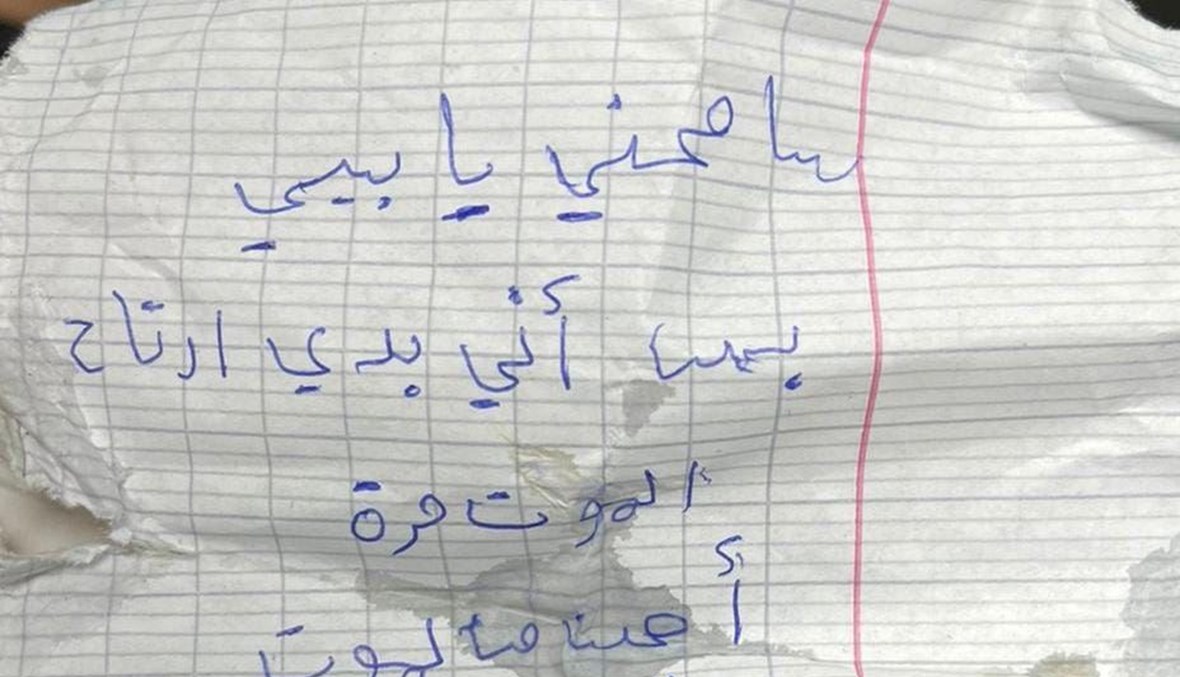 سامحني يا بيي
بس أني بدي ارتاح
الموت مرة
أهنا مالموت